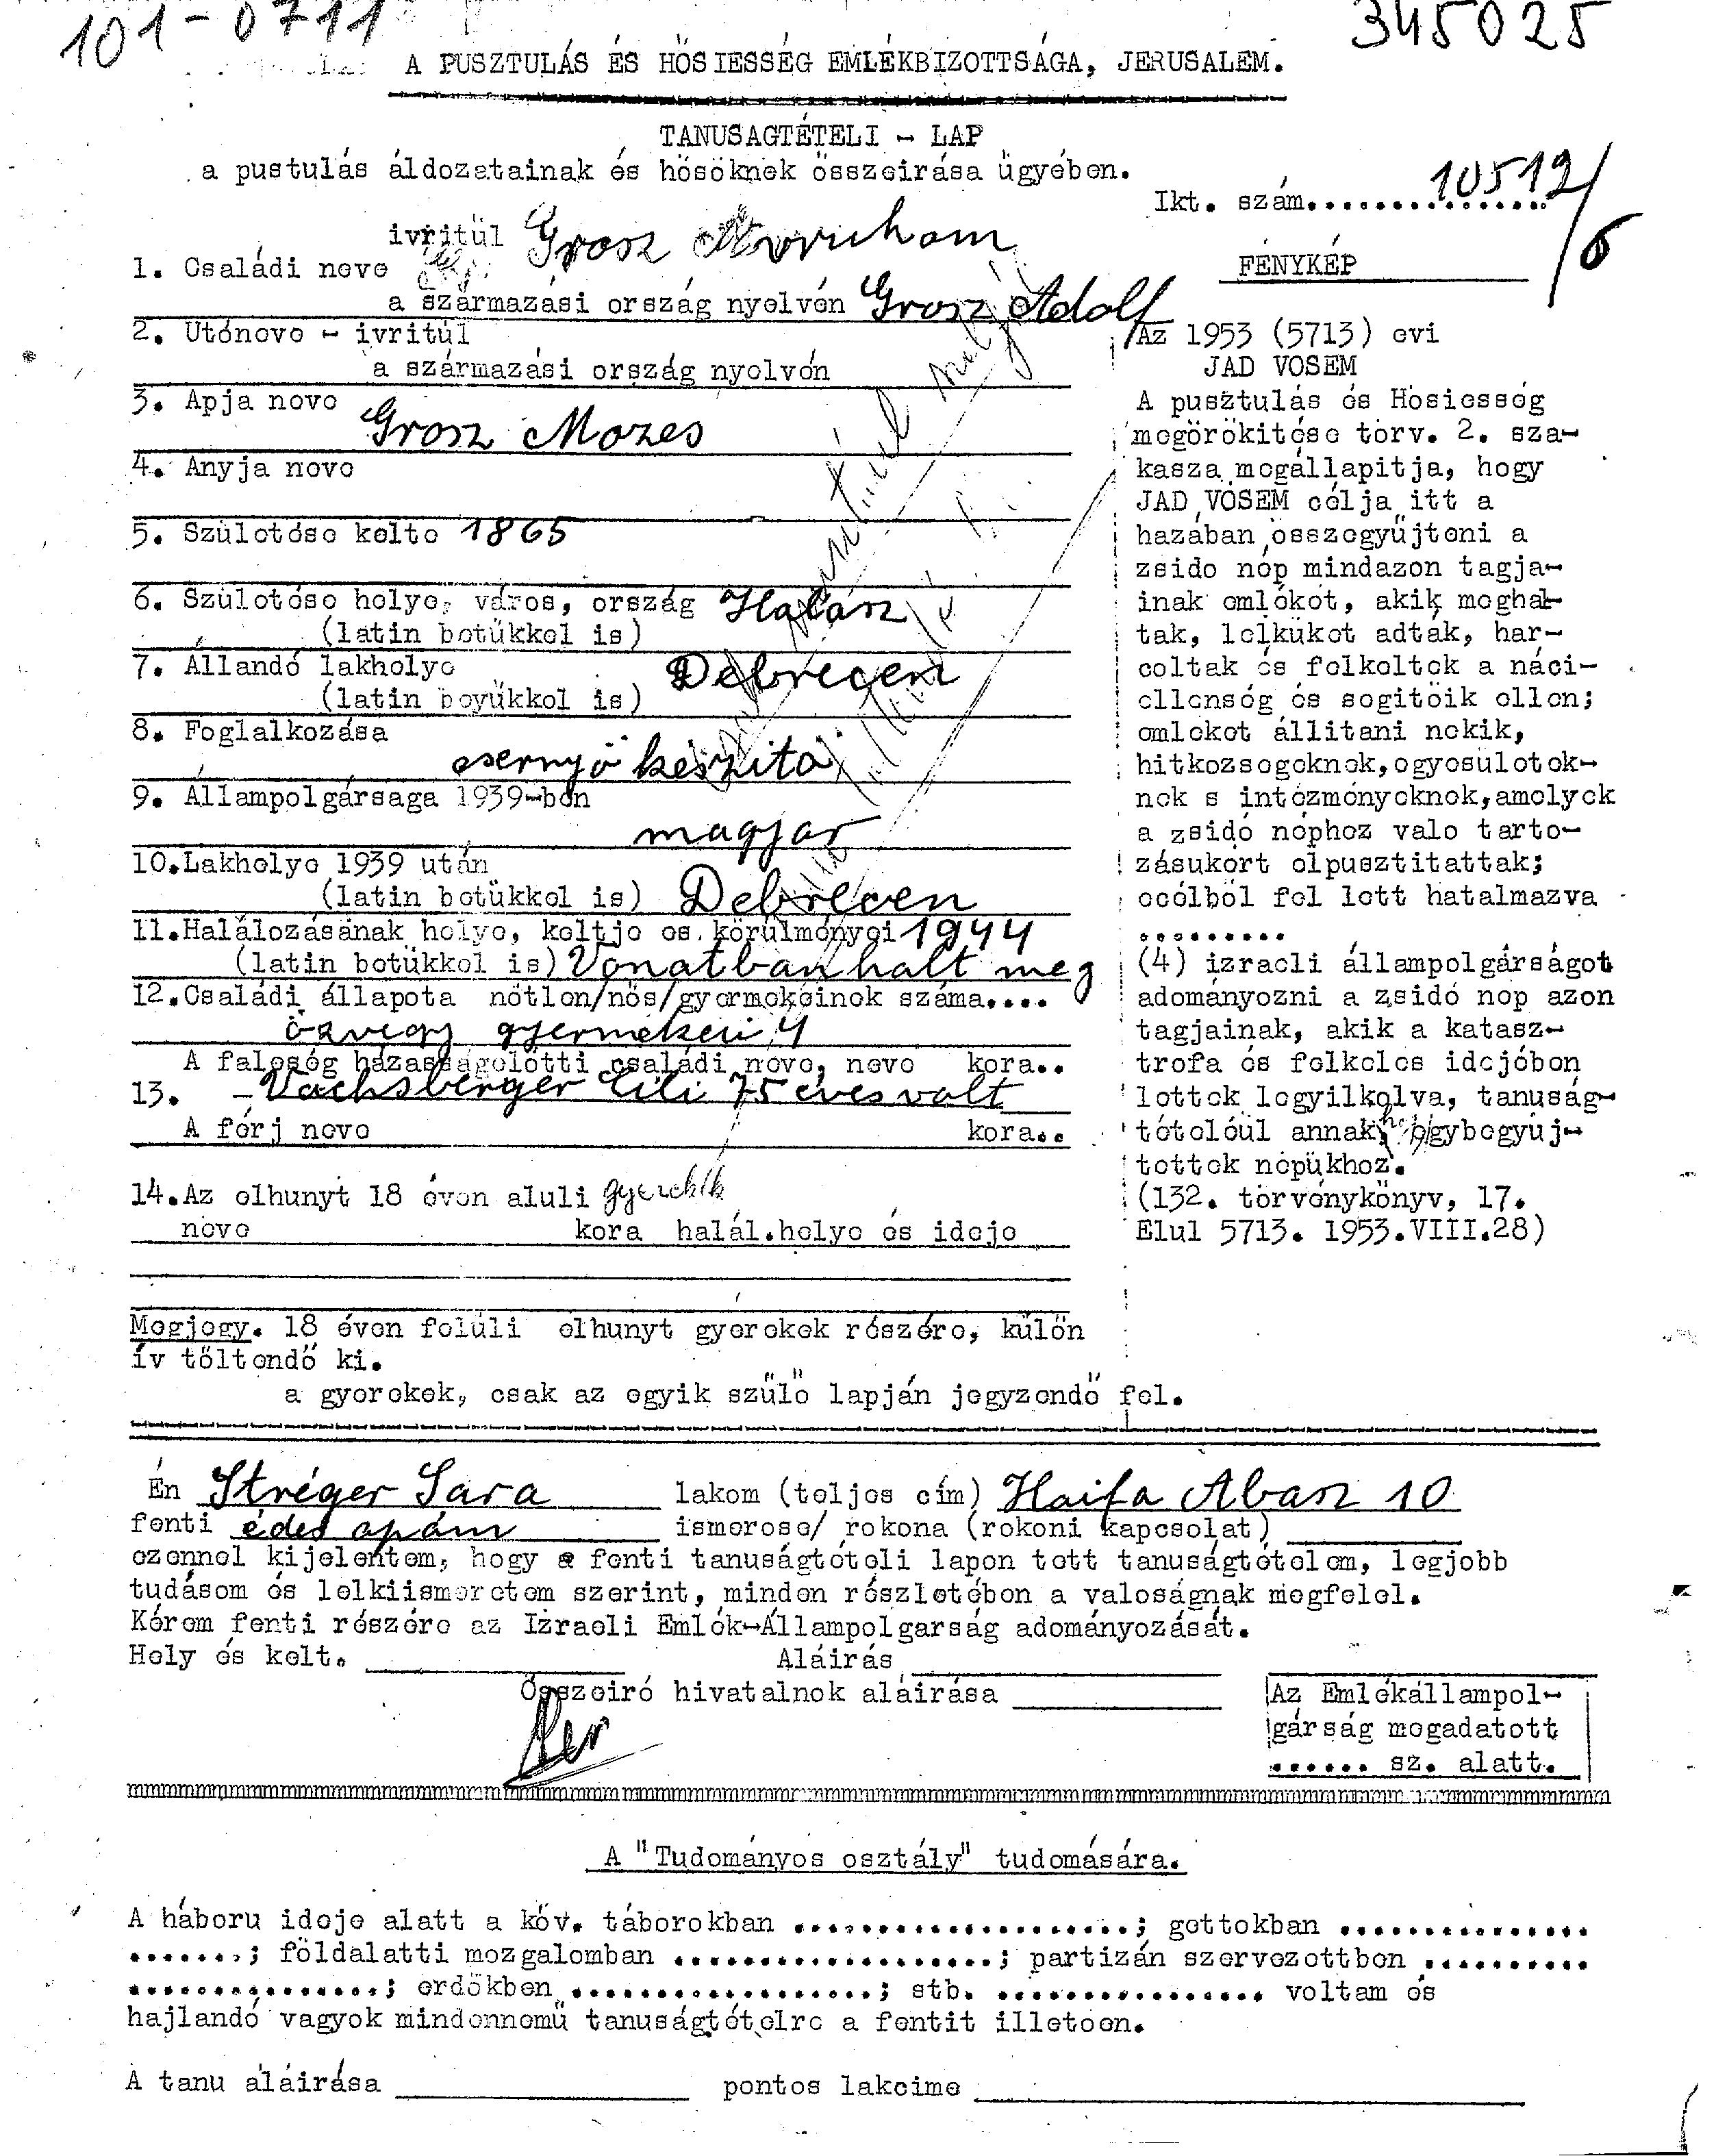 101-0711
345025
A PUSZTULÁS ÉS HÖSIESSÉG EMLÉKBIZOTTSÁGA, JERUSALEM.
TANUSAGTÉTELI - LAP
a pustulás áldozatainak és hösöknek összeirása ügyében.
Ikt. szám................
10512/6
ivritül Grosz Avruham
1. Családi neve
FÉNYKÉP
a származási ország nyelvén Grosz Adolf
2. Utóneve - ivritül
a származási ország nyelvén
3. Apja neve
Grosz Mozes
4. Anyja neve
5. Születése kelte 1865
6. Születése helye, város, ország Halász
(latin betükkel is)
7. Állandó lakhelye Debrecen
(latin boyükkel is)
8. Foglalkozása
esernyő készitő
9. Állampolgársaga 1939-ben
magyar
10.Lakhelye 1939 után
(latin betükkel is) Debrecen
11.Halálozásának helye, keltje es körülményei 1944
(latin betükkel is) Vonatban halt meg
12.Családi állapota nőtlen/nős/gyermekeinek száma....
özvegy gyermekei 4
A feleség házasságelőtti családi neve, neve kora..
13. - Vachsberger Lili 75 éves volt
A férj neve kora..
14.Az elhunyt 18 éven aluli gyerekek
neve kora halál.helye és ideje
Megjegy. 18 éven felüli elhunyt gyerekek részére, külön
ív töltendő ki.
a gyerekek, csak az egyik szülő lapján jegyzendő fel.
Az 1953 (5713) evi
JAD VOSEM
A pusztulás és Hösiesség
megörökitése törv. 2. sza-
kasza megállapitja, hogy
JAD VOSEM célja itt a
hazában összegyüjteni a
zsido nép mindazon tagja-
inak emlékét, akik meghal-
tak, lelküket adták, har-
coltak és felkeltek a náci-
ellenség és segitöik ellen;
emleket állitani nekik,
hitközsegeknek,egyesületek-
nek s intézményeknek,amelyek
a zsidó néphez valo tarto-
zásukért elpusztitattak;
ecélból fel lett hatalmazva
.........
(4) izraeli állampolgárságot
adományozni a zsidó nep azon
tagjainak, akik a katasz-
trofa és felkeles idejében
lettek legyilkolva, tanuság-
tételéül annak, hogy begyüj-
tettek népükhöz.
(132. törvénykönyv, 17.
Elul 5713. 1953.VIII.28)
Én Stréger Sara lakom (teljes cím) Haifa Abas 10
fenti édes apám ismerose/ rokona (rokoni kapcsolat)
ezennel kijelentem, hogy a fenti tanuságtételi lapon tett tanuságtételem, legjobb
tudásom és lelkiismeretem szerint, minden részletében a valoságnak megfelel.
Kérem fenti részére az Izraeli Emlék-Állampolgarság adományozását.
Hely és kelt. Aláirás
Összeiró hivatalnok aláirása
Az Emlékállampol-
gárság megadatott
...... sz. alatt.
A "Tudományos osztály" tudomására.
A háboru ideje alatt a köv. táborokban ....................; gettokban ...............
.......; földalatti mozgalomban ...................; partizán szervezettben ..........
...............; erdökben ..................; stb. ................ voltam és
hajlandó vagyok mindennemü tanuságtételre a fentit illetöen.
A tanu aláirása pontos lakcime